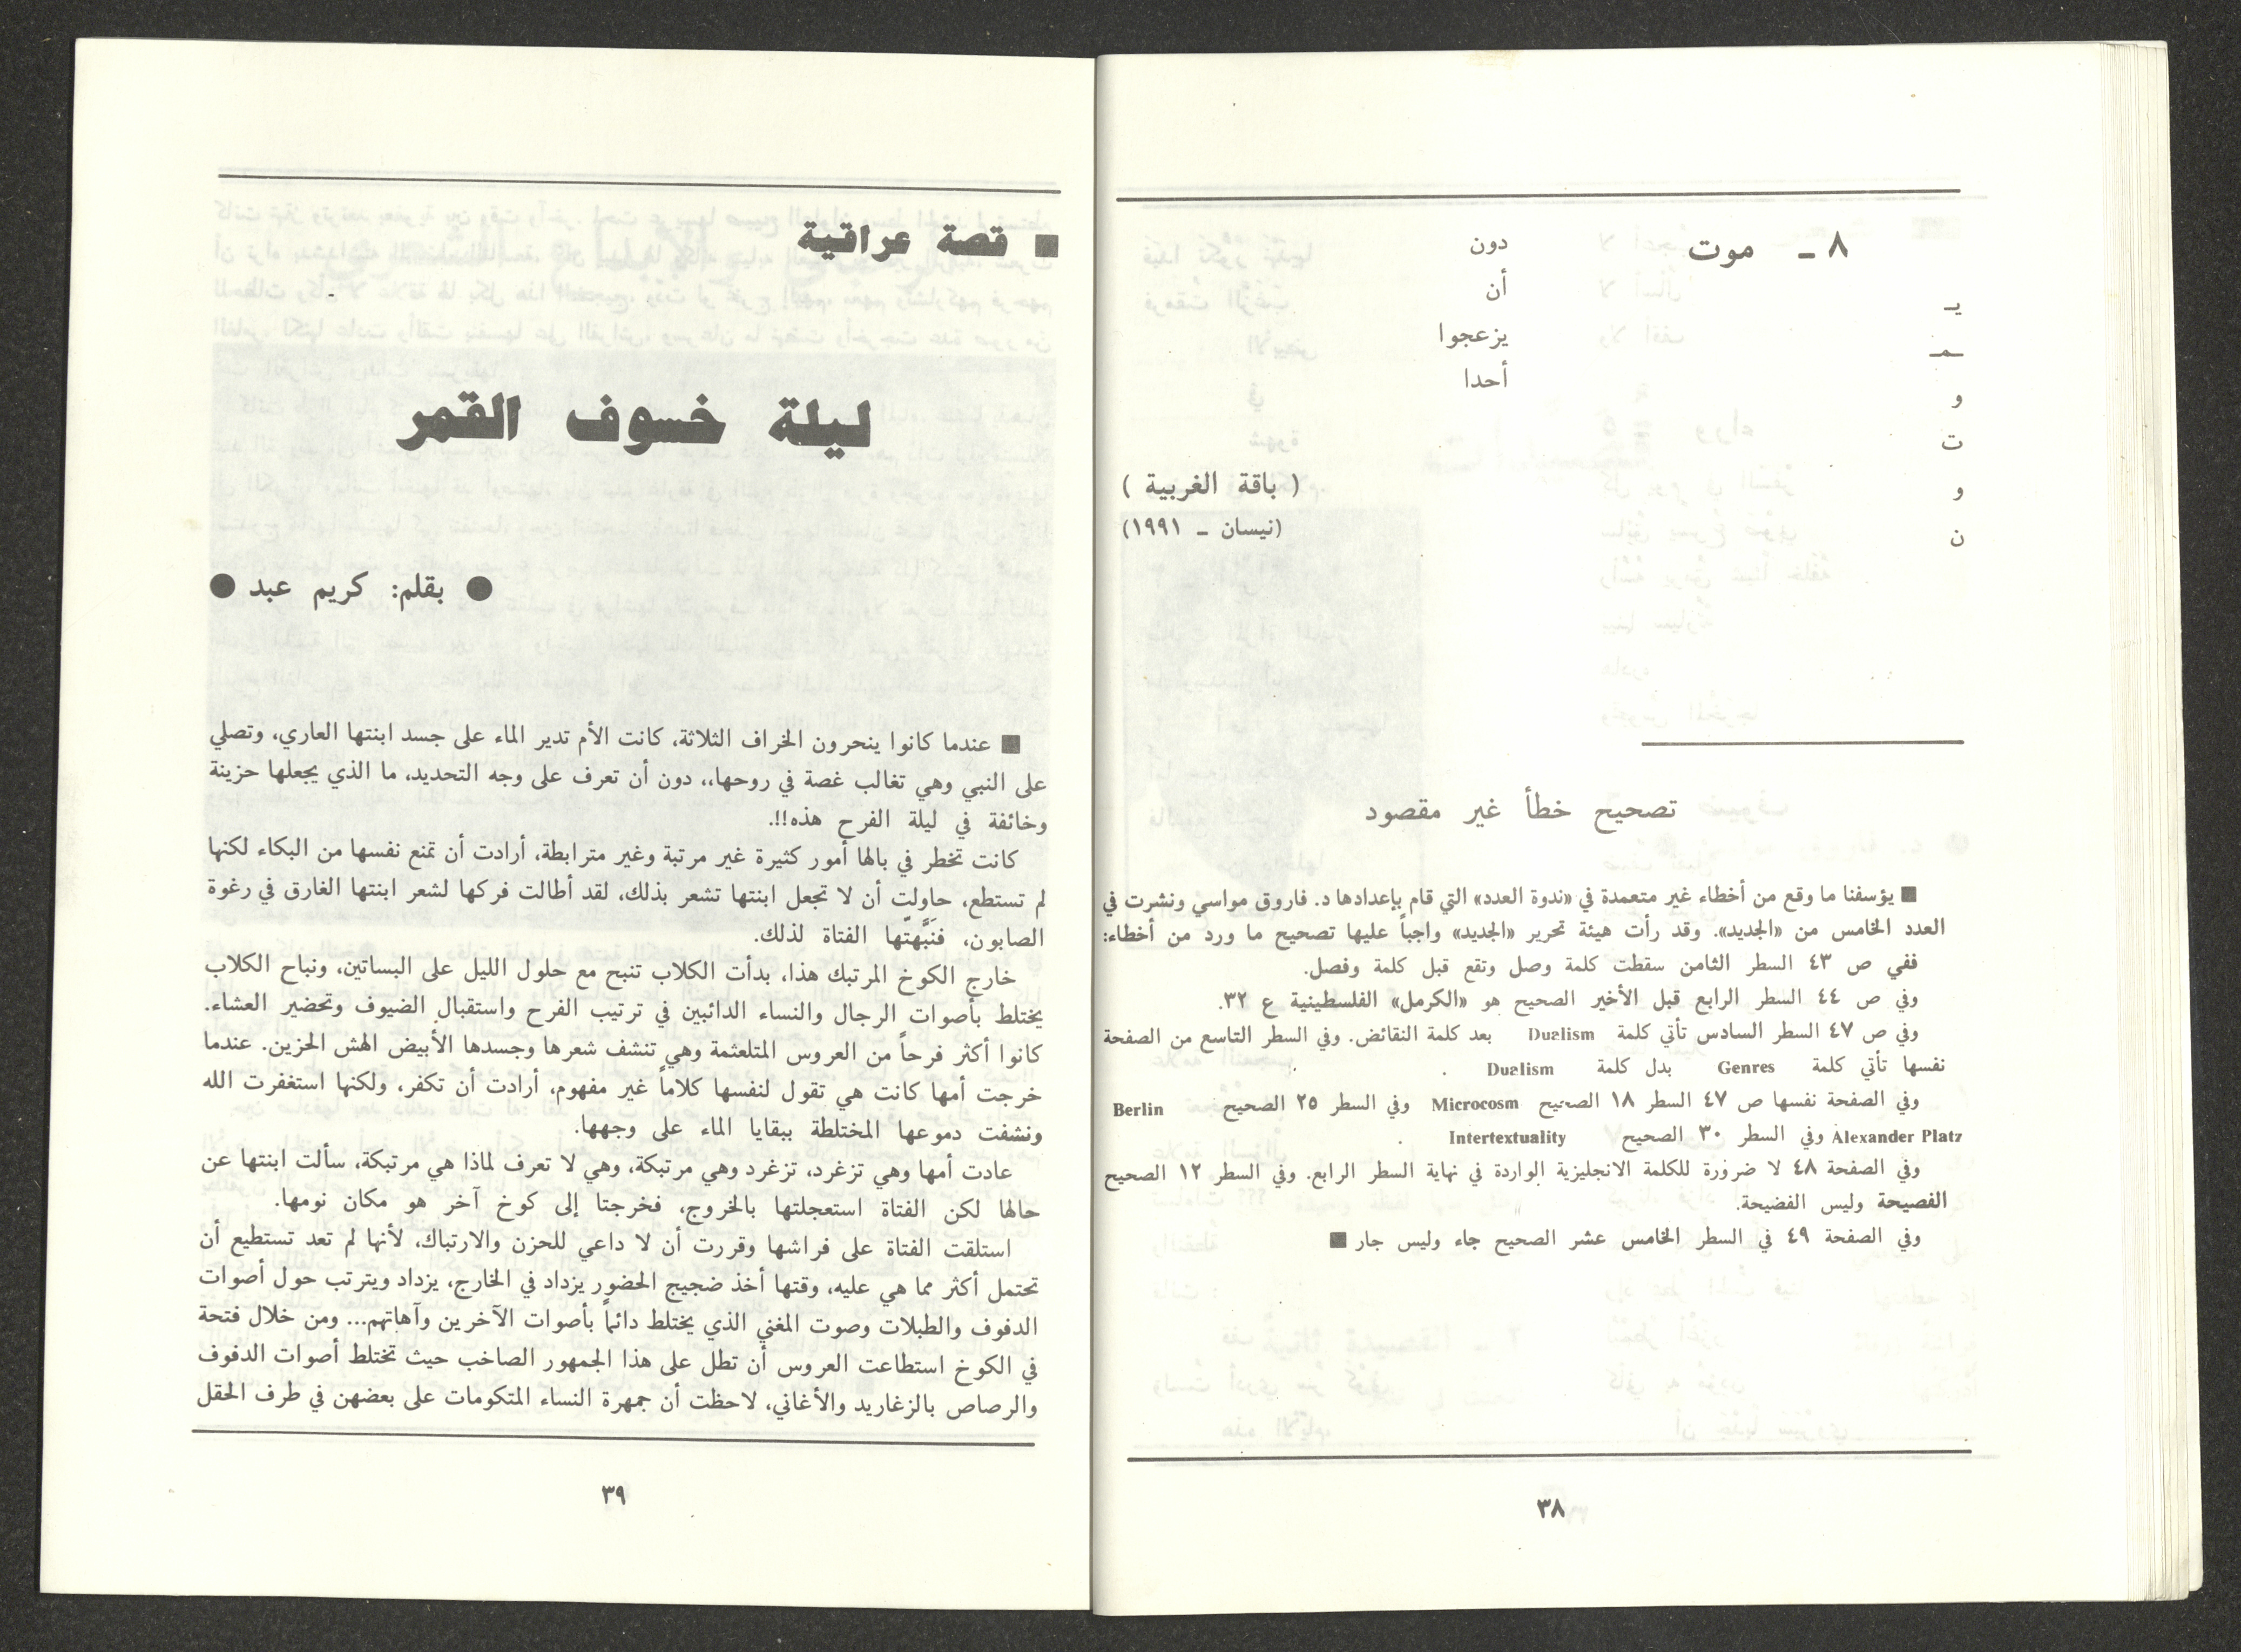 ٨ ـ موت
يـ
ـمـ
و
ت
و
ن
دون
أن
يزعجوا
أحدا
( باقة الغربية )
(نيسان ـ ١٩٩١)
تصحيح خطأ غير مقصود
■ يؤسفنا ما وقع من أخطاء غير متعمدة في «ندوة العدد» التي قام بإعدادها د. فاروق مواسي ونشرت في
العدد الخامس من «الجديد». وقد رأت هيئة تحرير «الجديد» واجباً عليها تصحيح ما ورد من أخطاء:
ففي ص ٤٣ السطر الثامن سقطت كلمة وصل وتقع قبل كلمة وفصل.
وفي ص ٤٤ السطر الرابع قبل الأخير الصحيح هو «الكرمل» الفلسطينية ع ٣٢.
وفي ص ٤٧ السطر السادس تأتي كلمة Dualism بعد كلمة النقائض. وفي السطر التاسع من الصفحة
نفسها تأتي كلمة Genres بدل كلمة Dualism .
وفي الصفحة نفسها ص ٤٧ السطر ١٨ الصحيح Microcosm وفي السطر ٢٥ الصحيح Berlin
Alexander Platz وفي السطر ٣٠ الصحيح Intertextuality .
وفي الصفحة ٤٨ لا ضرورة للكلمة الانجليزية الواردة في نهاية السطر الرابع. وفي السطر ١٢ الصحيح
الفصيحة وليس الفضيحة.
وفي الصفحة ٤٩ في السطر الخامس عشر الصحيح جاء وليس جار ■
٣٨
■ قصة عراقية
ليلة خسوف القمر
● بقلم: كريم عبد ●
■ عندما كانوا ينحرون الخراف الثلاثة، كانت الأم تدير الماء على جسد ابنتها العاري، وتصلي
على النبي وهي تغالب غصة في روحها،، دون أن تعرف على وجه التحديد، ما الذي يجعلها حزينة
وخائفة في ليلة الفرح هذه!!.
كانت تخطر في بالها أمور كثيرة غير مرتبة وغير مترابطة، أرادت أن تمنع نفسها من البكاء لكنها
لم تستطع، حاولت أن لا تجعل ابنتها تشعر بذلك، لقد أطالت فركها لشعر ابنتها الغارق في رغوة
الصابون، فنَبَّهتّها الفتاة لذلك.
خارج الكوخ المرتبك هذا، بدأت الكلاب تنبح مع حلول الليل على البساتين، ونباح الكلاب
يختلط بأصوات الرجال والنساء الدائبين في ترتيب الفرح واستقبال الضيوف وتحضير العشاء.
كانوا أكثر فرحاً من العروس المتلعثمة وهي تنشف شعرها وجسدها الأبيض الهش الحزين. عندما
خرجت أمها كانت هي تقول لنفسها كلاماً غير مفهوم، أرادت أن تكفر، ولكنها استغفرت الله
ونشفت دموعها المختلطة ببقايا الماء على وجهها.
عادت أمها وهي تزغرد، تزغرد وهي مرتبكة، وهي لا تعرف لماذا هي مرتبكة، سألت ابنتها عن
حالها لكن الفتاة استعجلتها بالخروج، فخرجتا إلى كوخ آخر هو مكان نومها.
استلقت الفتاة على فراشها وقررت أن لا داعي للحزن والارتباك، لأنها لم تعد تستطيع أن
تحتمل أكثر مما هي عليه، وقتها أخذ ضجيج الحضور يزداد في الخارج، يزداد ويترتب حول أصوات
الدفوف والطبلات وصوت المغني الذي يختلط دائماً بأصوات الآخرين وآهاتهم... ومن خلال فتحة
في الكوخ استطاعت العروس أن تطل على هذا الجمهور الصاخب حيث تختلط أصوات الدفوف
والرصاص بالزغاريد والأغاني، لاحظت أن جمهرة النساء المتكومات على بعضهن في طرف الحقل
٣٩